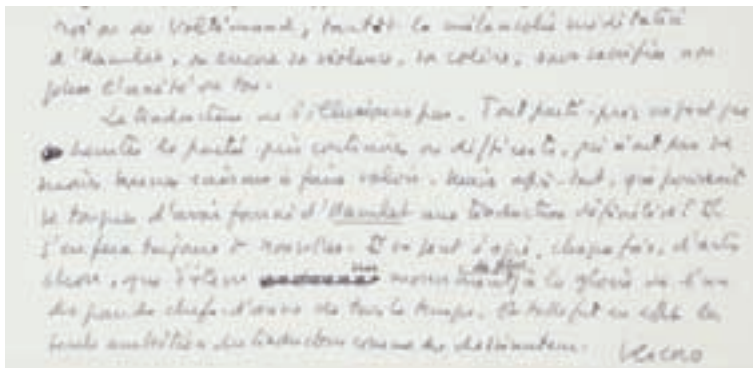 roi ou de Voltimand, tantôt la mélancolie méditative
d'Hamlet, ou encore sa violence, sa colère, sans sacrifier non
plus l'unité du ton.
Le traducteur ne s'illusionne pas. Tout parti-pris ne peut que
heurter le parti-pris contraire, ou différent, qui n'ont pas de
moins bonnes raisons à faire valoir. Mais après-tout, qui pourrait
se targuer d'avoir donné d'Hamlet une traduction définitive? Il
s'en fera toujours de nouvelles. Il ne peut s'agir, chaque fois,
que d'élever monument à la gloire de l'un
des grands chefs-d'œuvre de tous les temps. Et telle fut en effet la
seule ambition du traducteur comme du dessinateur. Vercors